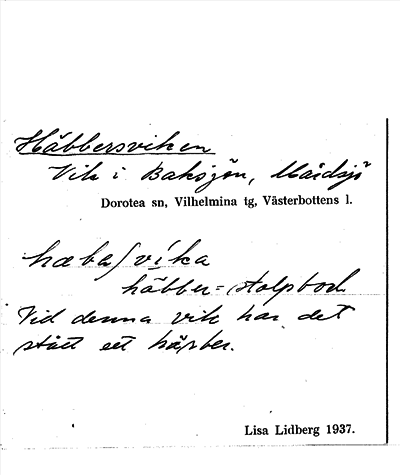 Häbbersviken
Vik i Baksjön, Mårdsjö
Dorotea sn, Vilhelmina tg, Västerbottens l.
hæba/vika
häbber = stolpbod
Vid denna vik har det
stått ett härber.
Lisa Lidberg 1937.